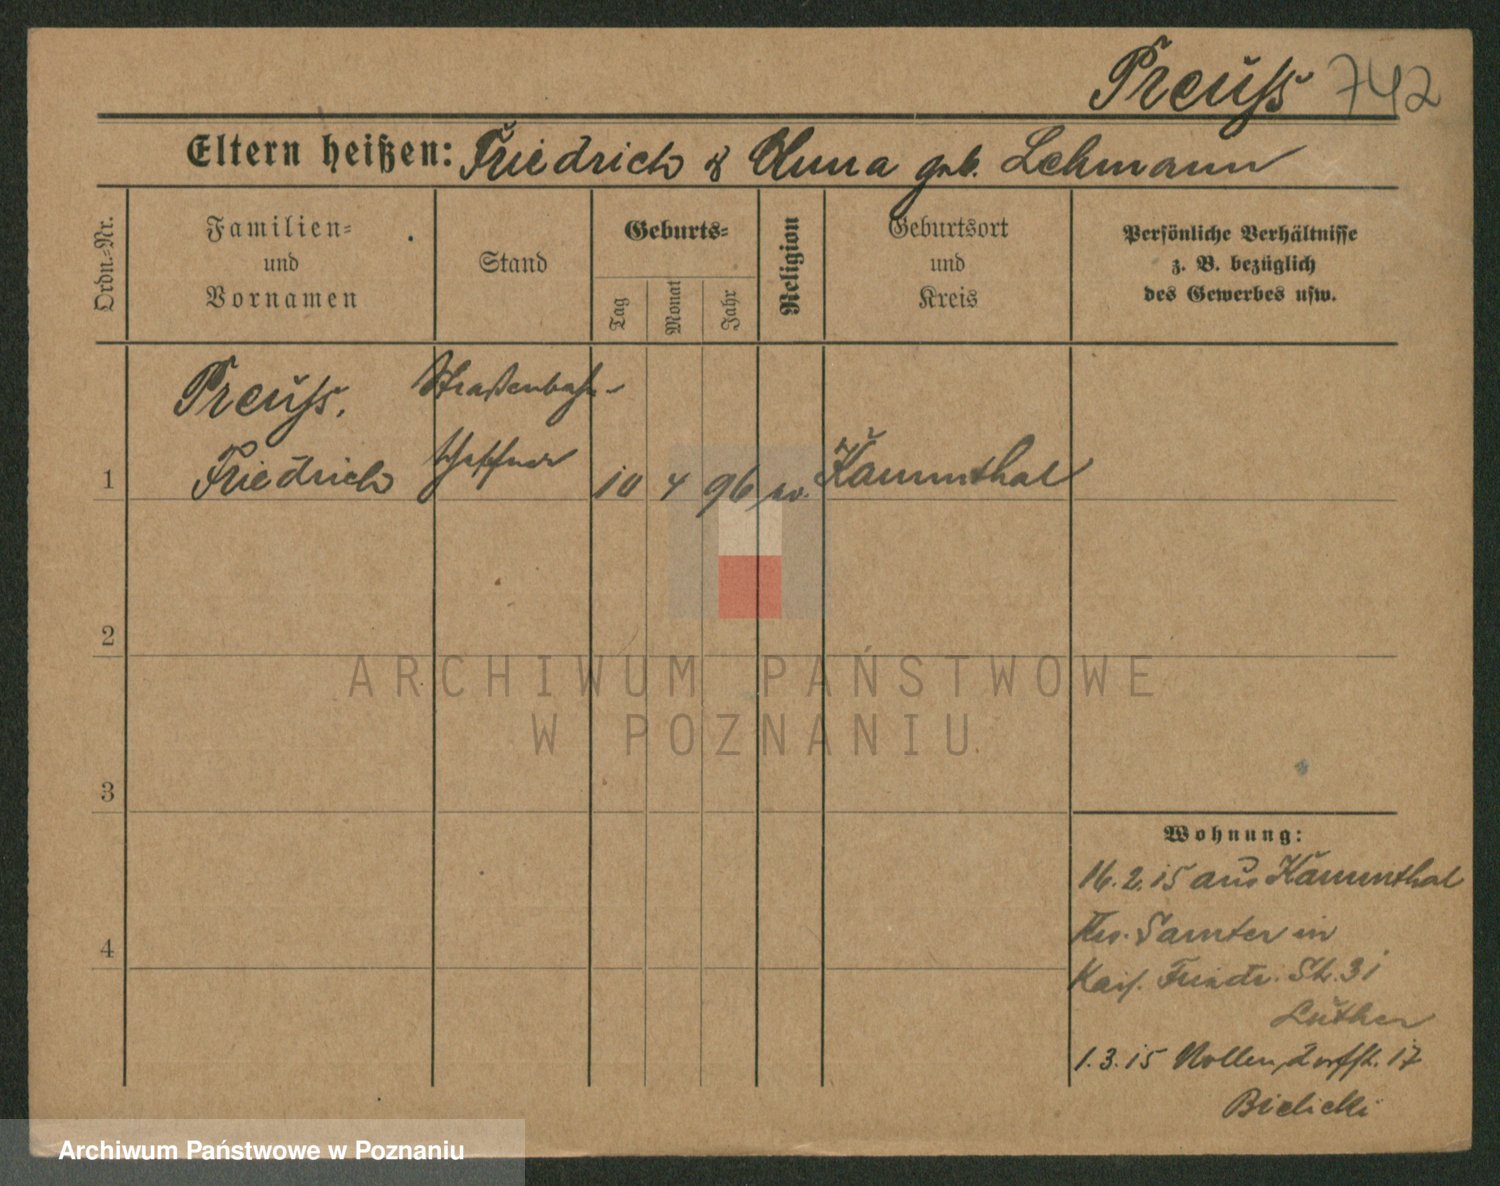 Preuß 742
Eltern heißen: Friedrich & Anna geb. Lehmann
Ordn.-Nr.
Familien-
und
Vornamen
Stand
Geburts-
Tag
Monat
Jahr
Religion
Geburtsort
und
Kreis
Persönliche Verhältnisse
z. B. bezüglich
des Gewerbes usw.
Preuß. Straßenbahn-
1 Friedrich Schaffner 10 4 96 ev. Kammthal
2
3
4
Wohnung:
16.2.15 aus Kammthal
Krs. Samter in
Kais. Friedr. Str. 31
Luther
1.3.15 Nollendorfstr. 17
Bielicki
ARCHIWUM PAŃSTWOWE
W POZNANIU
Archiwum Państwowe w Poznaniu